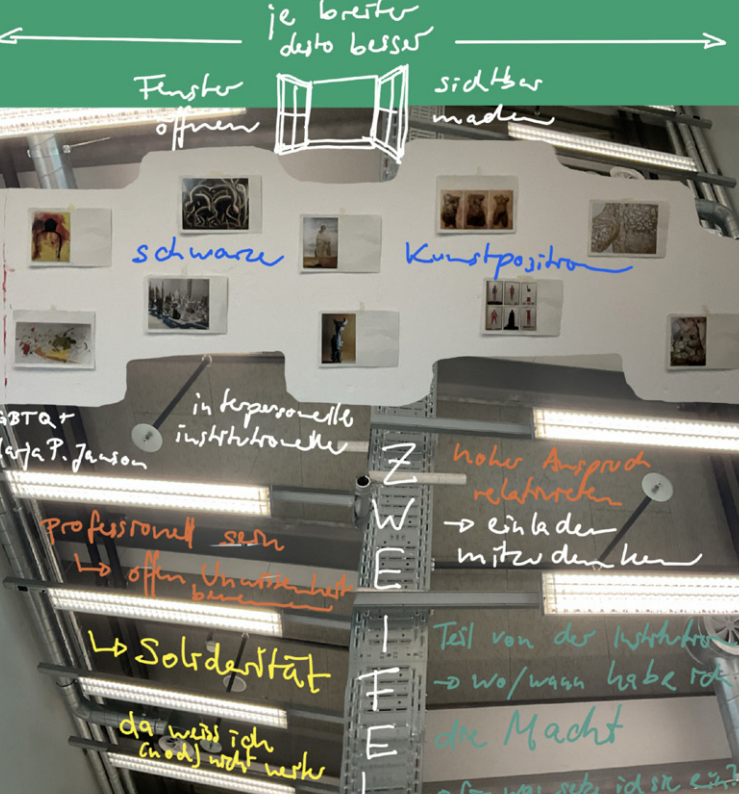 je breiter
desto besser
Fenster
öffnen
sichtbar
machen
schwarze Kunstposition
GBTQ+
Marja P. Janson
interpersonelle
institutionelle
ZWEIFEL
hoher Anspruch
relativieren
→ einladen
mitzudenken
professionell sein
↳ offen Unwissenheit
↳ Solidarität
da weiss ich
(noch) nicht weiter
Teil von der Institution
→ wo/wann habe ich
die Macht